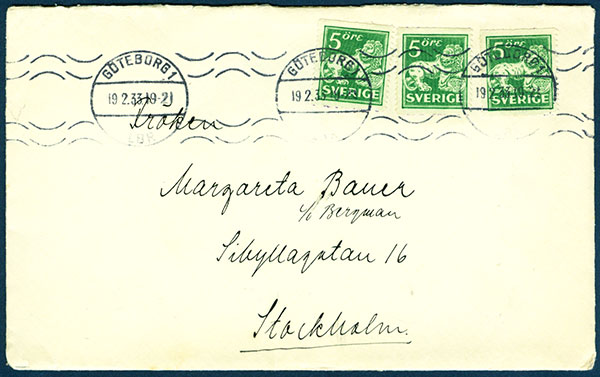 5 ÖRE 5 ÖRE 5 ÖRE
SVERIGE SVERIGE SVERIGE
GÖTEBORG 1 GÖTEBORG 1 GÖTEBORG 1
19 2.33 19-21 19 2.33 19-21 19 2.33 19-21
LBR
Fröken
Margareta Bauer
c/o Bergman
Sibyllagatan 16
Stockholm.